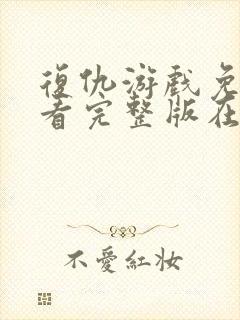 復仇游戲免
看完整版在
不愛紅妝